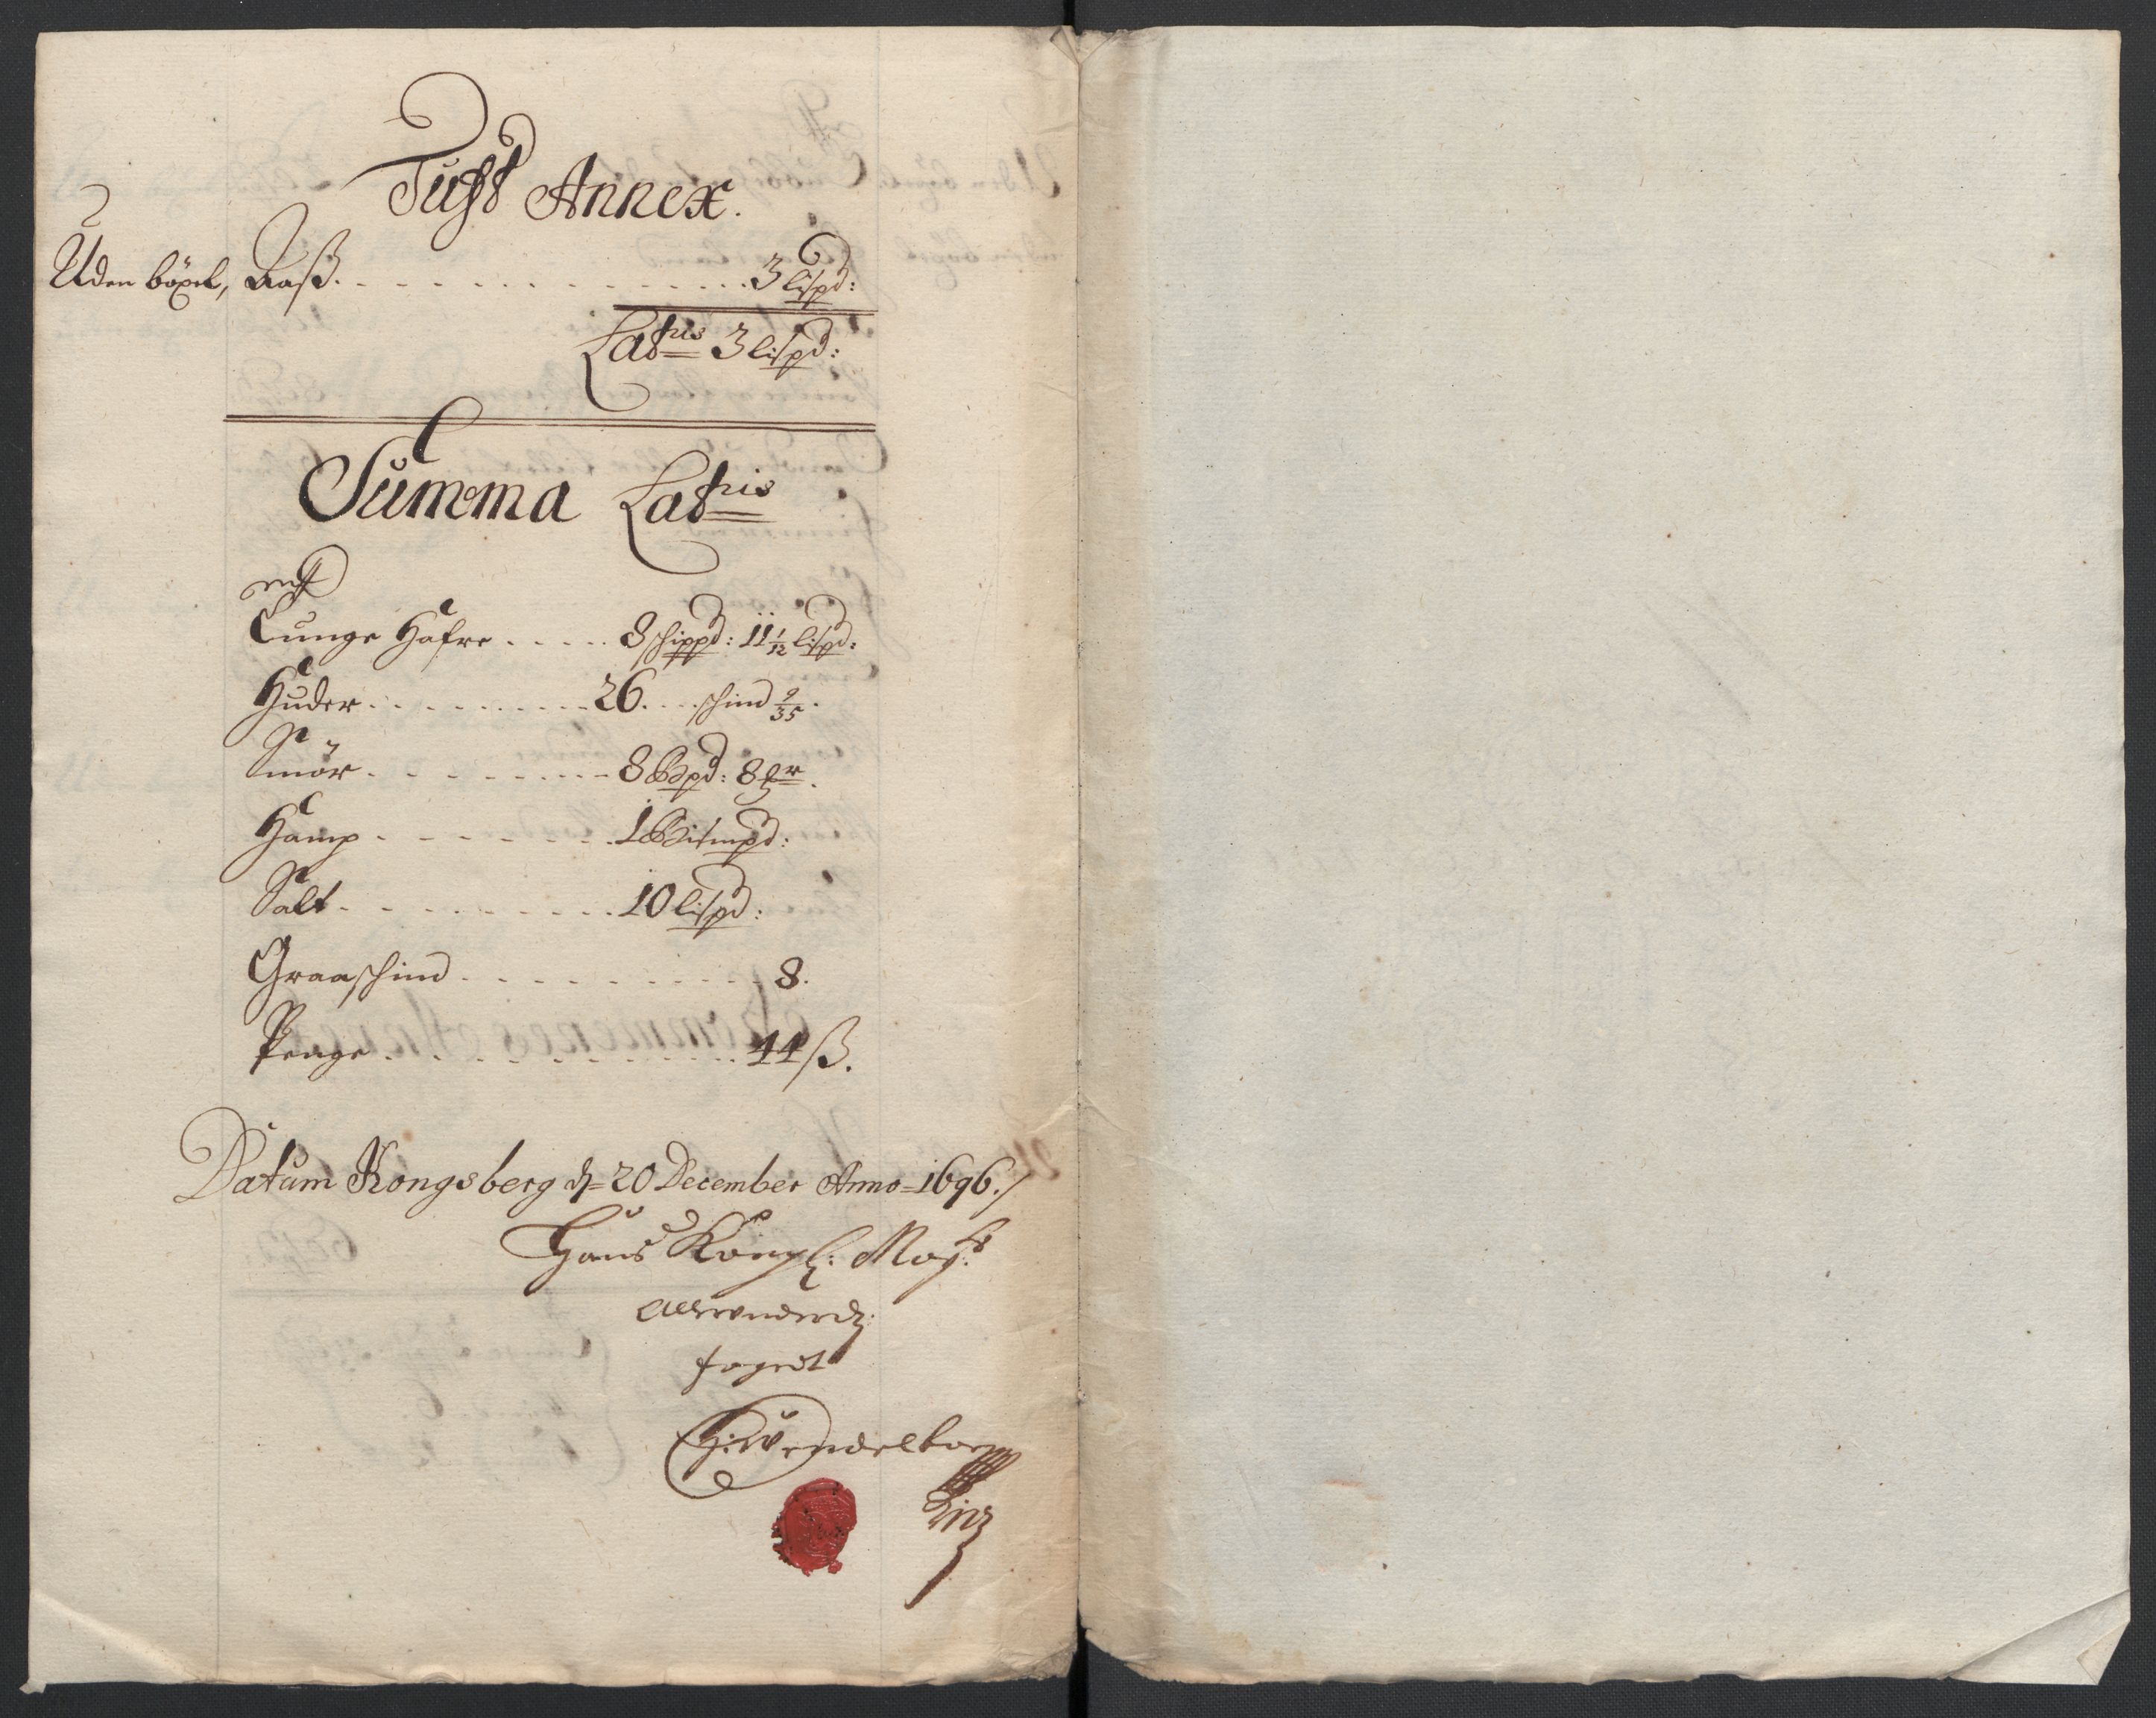 Tufft Annex.
Uden böxel, Aaß. 3 lispd:
Lateris 3 lispd:
Summa Lateris
Tunge Hafre 8 schippd: 11 1/12 lispd:
Huder 26. schind 9/35.
Smör 8 Bspd: 8 mr.
Hamp 1 Bismpd:
Salt 10 lispd:
Graaschind 8.
Penge 44 ß.
Datum Kongsberg d= 20 December Anno= 1696./
Hans Kongl: Mayts
fogedt
H: Wendelboe